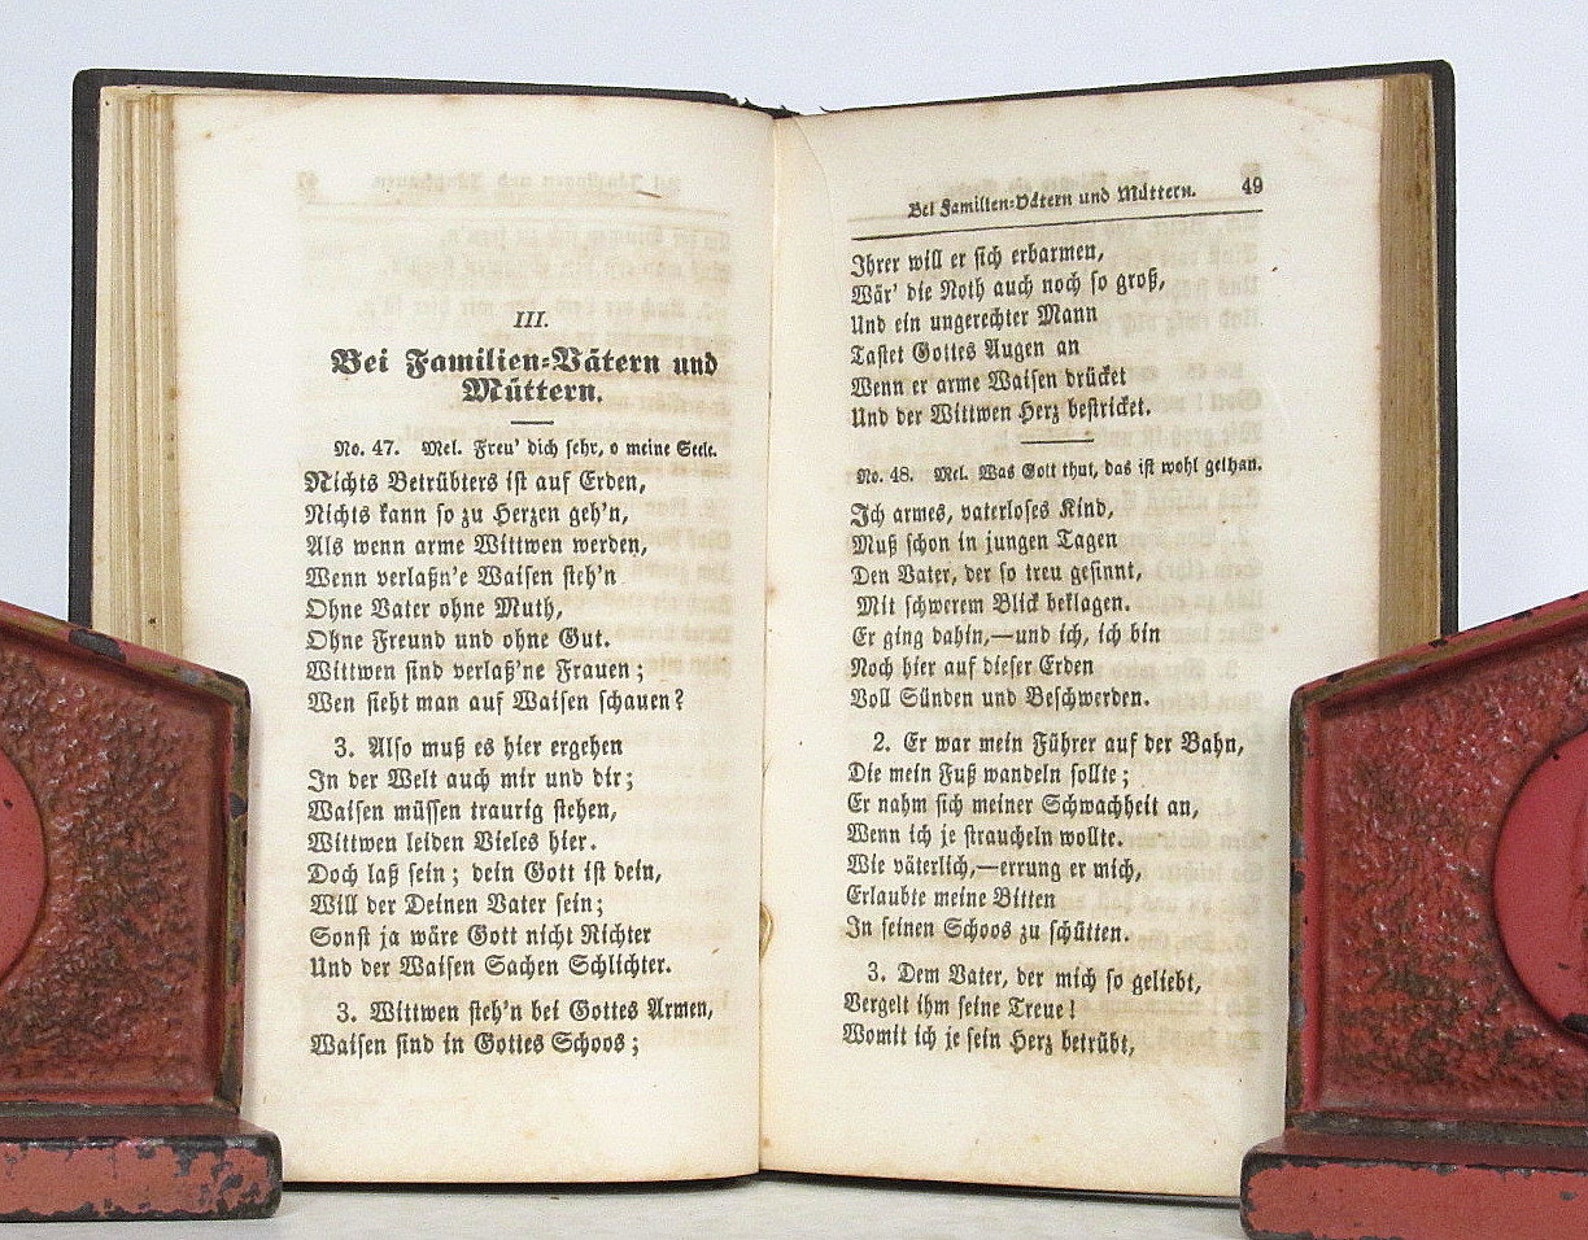 III.
Bei Familien=Vätern und
Müttern.
No. 47. Mel. Freu' dich sehr, o meine Seele.
Nichts Betrübters ist auf Erden,
Nichts kann so zu Herzen geh'n,
Als wenn arme Wittwen werden,
Wenn verlaßn'e Waisen steh'n
Ohne Vater ohne Muth,
Ohne Freund und ohne Gut.
Wittwen sind verlaß'ne Frauen;
Wen sieht man auf Waisen schauen?
3. Also muß es hier ergehen
In der Welt auch mir und dir;
Waisen müssen traurig stehen,
Wittwen leiden Vieles hier.
Doch laß sein; dein Gott ist dein,
Will der Deinen Vater sein;
Sonst ja wäre Gott nicht Richter
Und der Waisen Sachen Schlichter.
3. Wittwen steh'n bei Gottes Armen,
Waisen sind in Gottes Schoos;
Bei Familien=Vätern und Müttern. 49
Ihrer will er sich erbarmen,
Wär' die Noth auch noch so groß,
Und ein ungerechter Mann
Tastet Gottes Augen an
Wenn er arme Waisen drücket
Und der Wittwen Herz bestricket.
No. 48. Mel. Was Gott thut, das ist wohl gethan.
Ich armes, vaterloses Kind,
Muß schon in jungen Tagen
Den Vater, der so treu gesinnt,
Mit schwerem Blick beklagen.
Er ging dahin,—und ich, ich bin
Noch hier auf dieser Erden
Voll Sünden und Beschwerden.
2. Er war mein Führer auf der Bahn,
Die mein Fuß wandeln sollte;
Er nahm sich meiner Schwachheit an,
Wenn ich je straucheln wollte.
Wie väterlich,—errung er mich,
Erlaubte meine Bitten
In seinen Schoos zu schütten.
3. Dem Vater, der mich so geliebt,
Vergelt ihm seine Treue!
Womit ich je sein Herz betrübt,